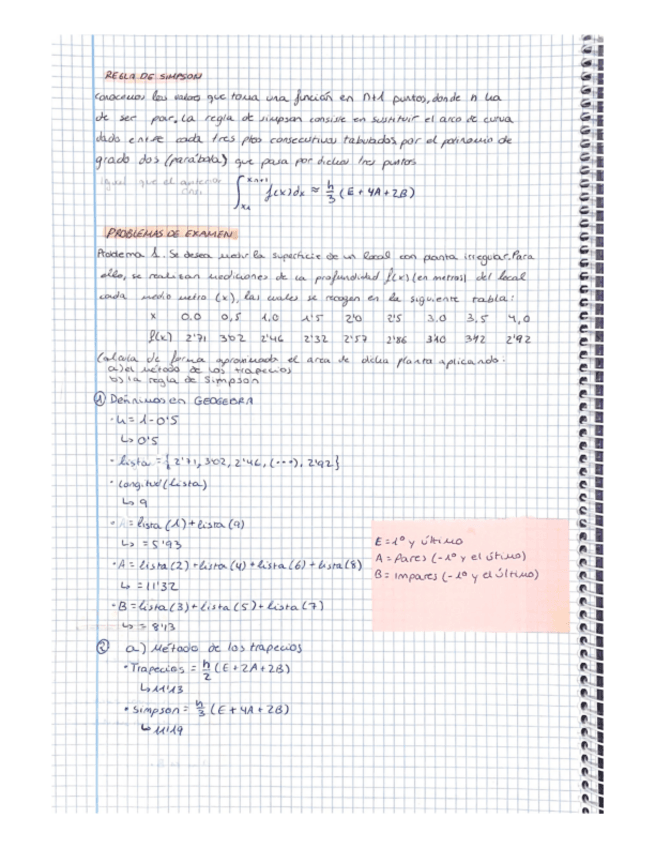 REGLA DE SIMPSON
conocemos los valores que toma una función en n+1 puntos, donde n ha
de ser par. La regla de simpson consiste en sustituir el arco de curva
dado entre cada tres ptos consecutivos tabulados por el polinomio de
grado dos (parábola) que pasa por dichos tres puntos
igual que el anterior
∫ f(x)dx ≈ h/3 (E + 4A + 2B)
PROBLEMAS DE EXAMEN
Problema 1. Se desea medir la superficie de un local con planta irregular. Para
ello, se realizan mediciones de la profundidad f(x) (en metros) del local
cada medio metro (x), las cuales se recogen en la siguiente tabla:
x 0.0 0,5 1,0 1'5 2'0 2'5 3.0 3,5 4,0
f(x) 2'71 3'02 2'46 2'32 2'57 2'86 3'40 3'12 2'92
Calcula de forma aproximada el area de dicha planta aplicando:
a) el método de los trapecios
b) la regla de Simpson
① Definimos en GEOGEBRA
· h = 1-0'5
↳ 0'5
· lista = {2'71, 3'02, 2'46, (···), 2'92}
· Longitud (lista)
↳ 9
· = lista (1) + lista (9)
↳ = 5'93
· A = lista (2) + lista (4) + lista (6) + lista (8)
↳ = 11'32
· B = lista (3) + lista (5) + lista (7)
↳ = 8'13
E = 1º y último
A = Pares (-1º y el último)
B = Impares (-1º y el último)
② a) Método de los trapecios
· Trapecios = h/2 (E + 2A + 2B)
↳ 11'13
· Simpson = h/3 (E + 4A + 2B)
↳ 11'19